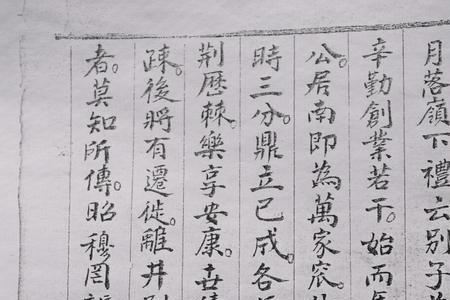 月落嶺下禮云別子
辛勤創業若干。始而
公。居南即為萬家衆。
時三分。鼎立已成。各
荆歷棘。樂享安康。廿
疎。後將有遷徙。離井
者。莫知所傳。昭穆罔